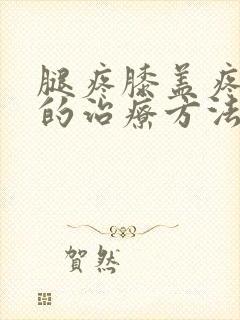 腿疼膝盖疼
的治疗方法
賀然